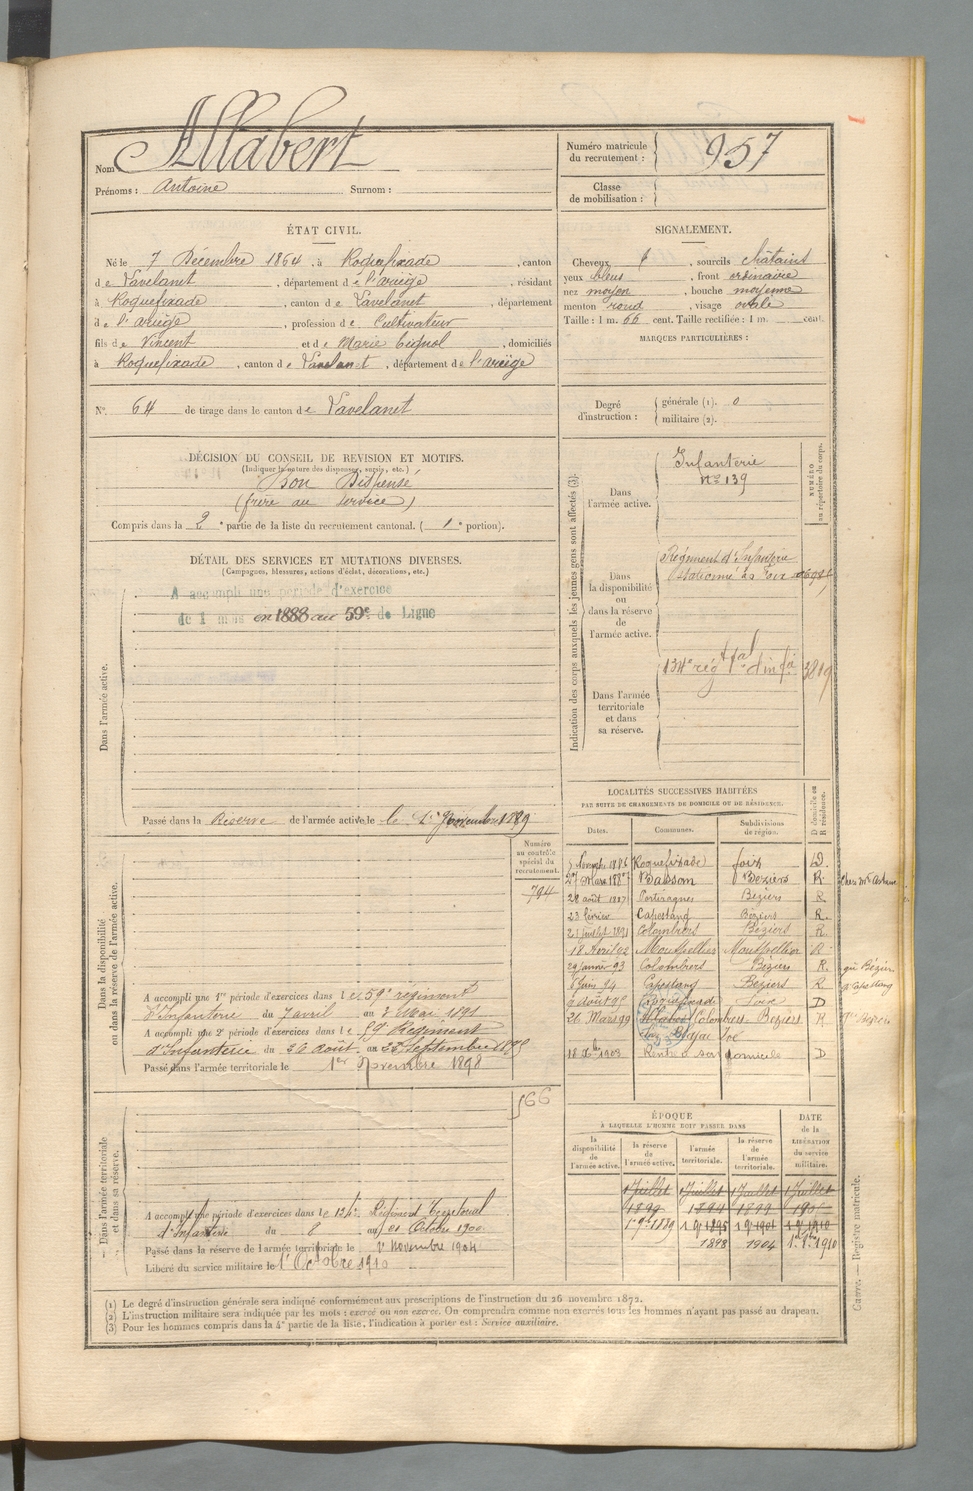 Nom Allabert
Prénoms : Antoine Surnom :
Numéro matricule du recrutement : 957
Classe de mobilisation :
ÉTAT CIVIL.
Né le 7 Décembre 1864, à Roquefixade, canton
de Lavelanet, département de l'ariège, résidant
à Roquefixade, canton de Lavelanet, département
de l'ariège, profession de Cultivateur
fils de Vincent et de Marie, domiciliés
à Roquefixade, canton de Lavelanet, département de l'ariège
N° 64 de tirage dans le canton de Lavelanet
SIGNALEMENT.
Cheveux, sourcils châtains
yeux bleus, front ordinaire
nez moyen, bouche moyenne
menton rond, visage ovale
Taille : 1 m. 66 cent. Taille rectifiée : 1 m. cent.
MARQUES PARTICULIÈRES :
Degré d'instruction : générale (1). 0
militaire (2).
DÉCISION DU CONSEIL DE REVISION ET MOTIFS.
(Indiquer la nature des dispenses, sursis, etc.)
Bon Dispensé
(frère au service)
Compris dans la 2e partie de la liste du recrutement cantonal. (1e portion).
DÉTAIL DES SERVICES ET MUTATIONS DIVERSES.
(Campagnes, blessures, actions d'éclat, décorations, etc.)
Dans l'armée active.
A accompli une période d'exercice
de 1 mois en 1888 au 59e de Ligne
Passé dans la Réserve de l'armée active le 1er Novembre 1889
Indication des corps auxquels les jeunes gens sont affectés (3):
NUMÉRO au répertoire du corps.
Dans l'armée active.
Infanterie
n° 139
Dans la disponibilité ou dans la réserve de l'armée active.
Régiment d'Infanterie
stationné à Foix
Dans l'armée territoriale et dans sa réserve.
134e rég t al d'infie 3819
Dans la disponibilité ou dans la réserve de l'armée active.
Numéro au contrôle spécial du recrutement.
794
A accompli une 1re période d'exercices dans le 59e régiment
d'Infanterie du 7 avril au 4 Mai 1891
A accompli une 2e période d'exercices dans le 59e Régiment
d'Infanterie du 26 août au 22 Septembre 1895
Passé dans l'armée territoriale le 1er Novembre 1898
LOCALITÉS SUCCESSIVES HABITÉES
PAR SUITE DE CHANGEMENTS DE DOMICILE OU DE RÉSIDENCE.
D domicile ou R résidence.
Dates. Communes. Subdivisions de région.
Novembre 1886 Roquefixade foix D
27 Mars 1887 Bassan Béziers R
28 août 1887 Portiragnes Béziers R
23 février Capestang Béziers R.
21 Juillet 1891 Colombiers Béziers R.
18 Avril 92 Montpellier Montpellier R
29 janvier 93 Colombiers Béziers R.
Juin 94 Capestang Béziers R
août 95 Roquefixade Foix D
26 Mars 99 Colombiers Béziers R
18 1903 Rentré à son domicile D
Dans l'armée territoriale et dans sa réserve.
566
A accompli une période d'exercices dans le 134e Régiment Territorial
d'Infanterie du 8 au Octobre 1900
Passé dans la réserve de l'armée territoriale le 1er Novembre 1904
Libéré du service militaire le 1er Octobre 1910
ÉPOQUE
À LAQUELLE L'HOMME DOIT PASSER DANS
DATE de la LIBÉRATION du service militaire.
la disponibilité de l'armée active. la réserve de l'armée active. l'armée territoriale. la réserve de l'armée territoriale.
1 Juillet 1 Juillet 1 Juillet 1 Juillet
1894 1899
1889 1895 1901 1910
1898 1904 1910
(1) Le degré d'instruction générale sera indiqué conformément aux prescriptions de l'instruction du 26 novembre 1872.
(2) L'instruction militaire sera indiquée par les mots : exercé ou non exercé. On comprendra comme non exercés tous les hommes n'ayant pas passé au drapeau.
(3) Pour les hommes compris dans la 4e partie de la liste, l'indication à porter est : Service auxiliaire.
Registre matricule.